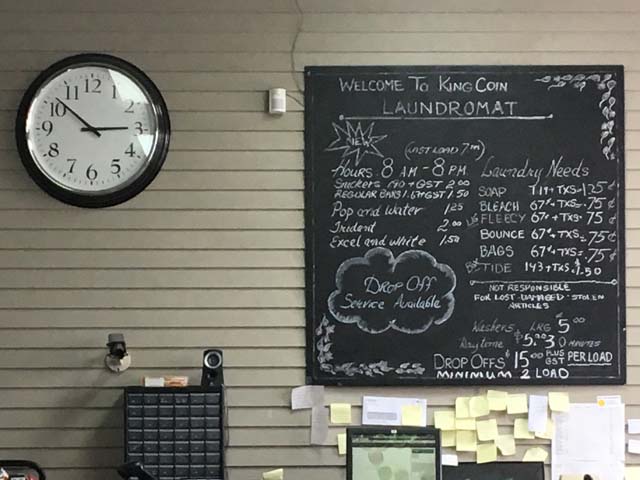 12
11
1
10
2
9
3
8
4
7
5
6
WELCOME TO KING COIN
LAUNDROMAT
NEW
(LAST LOAD 7PM)
HOURS 8 AM - 8 PM
Snickers 190 + GST 2.00
REGULAR BARS 1.67+GST 1.50
Pop and Water 1.25
Trident 2.00
Excel and White 1.50
Drop Off
Service Available
Laundry Needs
SOAP 111 + TXS = 1.25¢
BLEACH 67¢ + TXS = .75¢
FLEECY 67¢ + TXS = .75¢
BOUNCE 67¢ + TXS = .75¢
BAGS 67¢ + TXS = .75¢
TIDE 143 + TXS = $1.50
NOT RESPONSIBLE
FOR LOST - DAMAGED - STOLEN
ARTICLES
Washers LRG $5.00
Dry time 30 MINUTES
DROP OFFS $15.00 PLUS GST PER LOAD
MINIMUM 2 LOAD